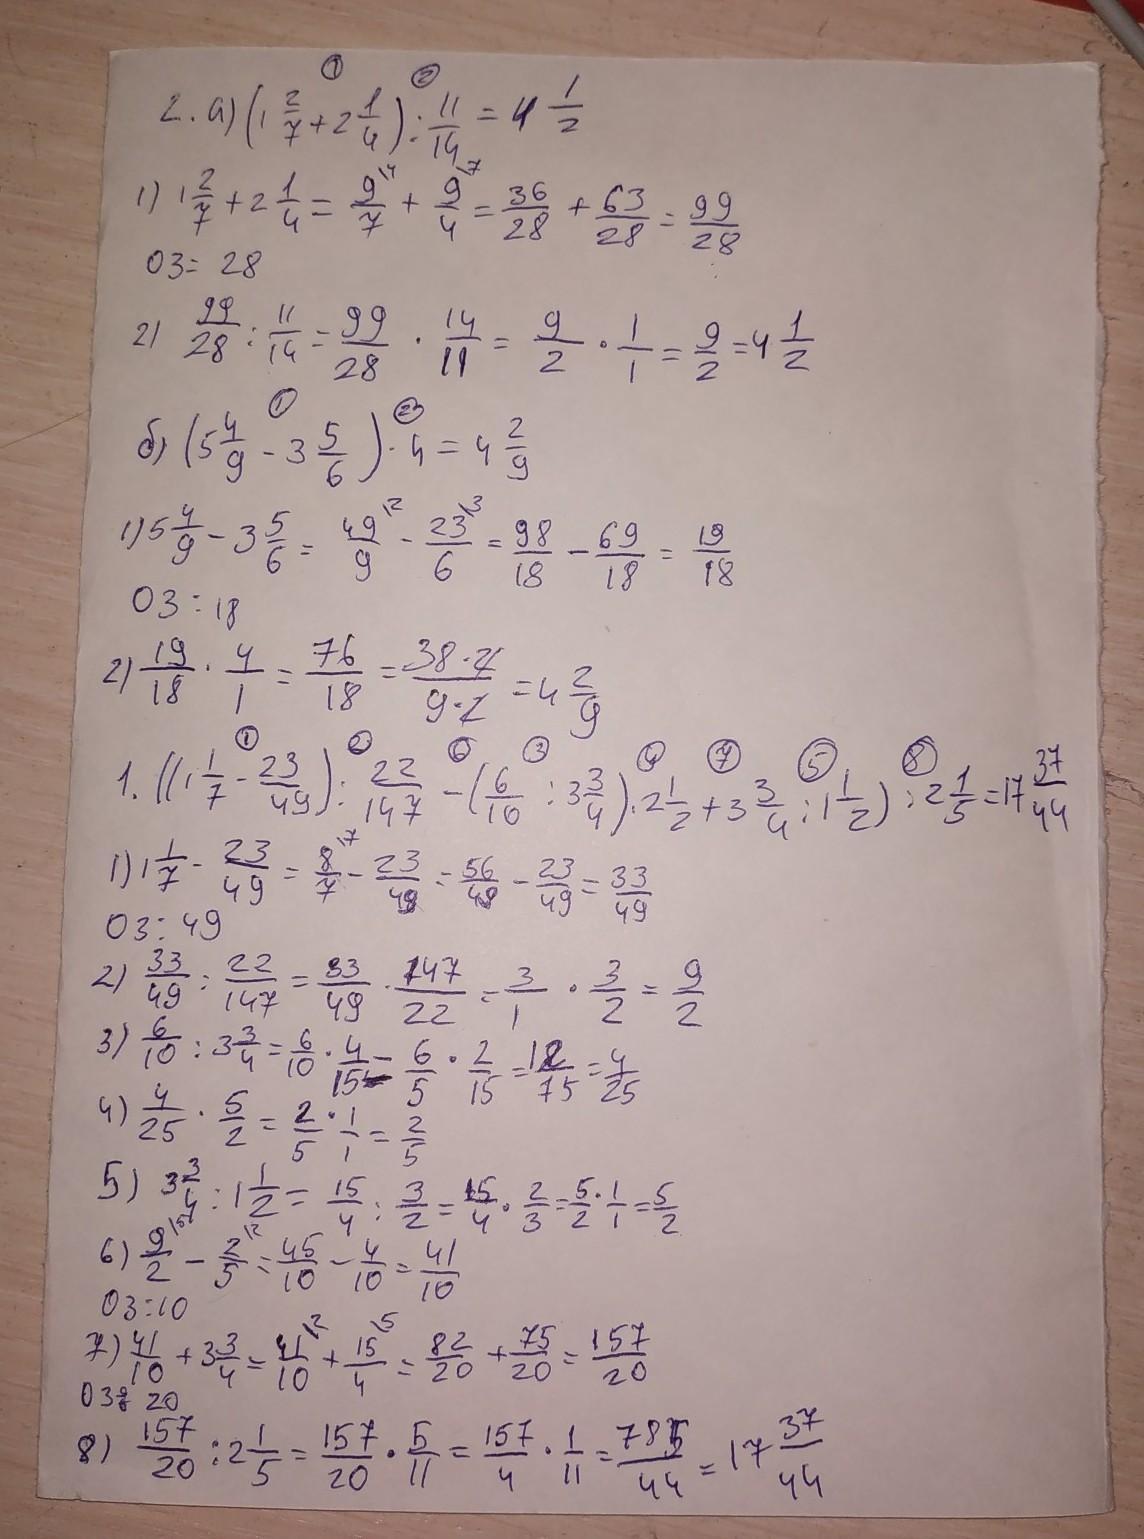 ① ②
2. а) (1 2/7 + 2 1/4) : 11/14 = 4 1/2
1) 1 2/7 + 2 1/4 = 9\4/7 + 9\7/4 = 36/28 + 63/28 = 99/28
ОЗ = 28
2) 99/28 : 11/14 = 99/28 · 14/11 = 9/2 · 1/1 = 9/2 = 4 1/2
① ②
б) (5 4/9 - 3 5/6) · 4 = 4 2/9
1) 5 4/9 - 3 5/6 = 49\2/9 - 23\3/6 = 98/18 - 69/18 = 19/18
ОЗ : 18
2) 19/18 · 4/1 = 76/18 = 38·2/9·2 = 4 2/9
① ② ⑥ ③ ④ ⑦ ⑤ ⑧
1. ((1 1/7 - 23/49) : 22/147 - (6/10 : 3 3/4) · 2 1/2 + 3 3/4 : 1 1/2) : 2 1/5 = 17 37/44
1) 1 1/7 - 23/49 = 8\7/7 - 23/49 = 56/49 - 23/49 = 33/49
ОЗ : 49
2) 33/49 : 22/147 = 33/49 · 147/22 = 3/1 · 3/2 = 9/2
3) 6/10 : 3 3/4 = 6/10 · 4/15 = 6/5 · 2/15 = 12/75 = 4/25
4) 4/25 · 5/2 = 2/5 · 1/1 = 2/5
5) 3 3/4 : 1 1/2 = 15/4 : 3/2 = 15/4 · 2/3 = 5/2 · 1/1 = 5/2
6) 9\5/2 - 2\2/5 = 45/10 - 4/10 = 41/10
ОЗ : 10
7) 41/10 + 3 3/4 = 41\2/10 + 15\5/4 = 82/20 + 75/20 = 157/20
ОЗ : 20
8) 157/20 : 2 1/5 = 157/20 · 5/11 = 157/4 · 1/11 = 785/44 = 17 37/44